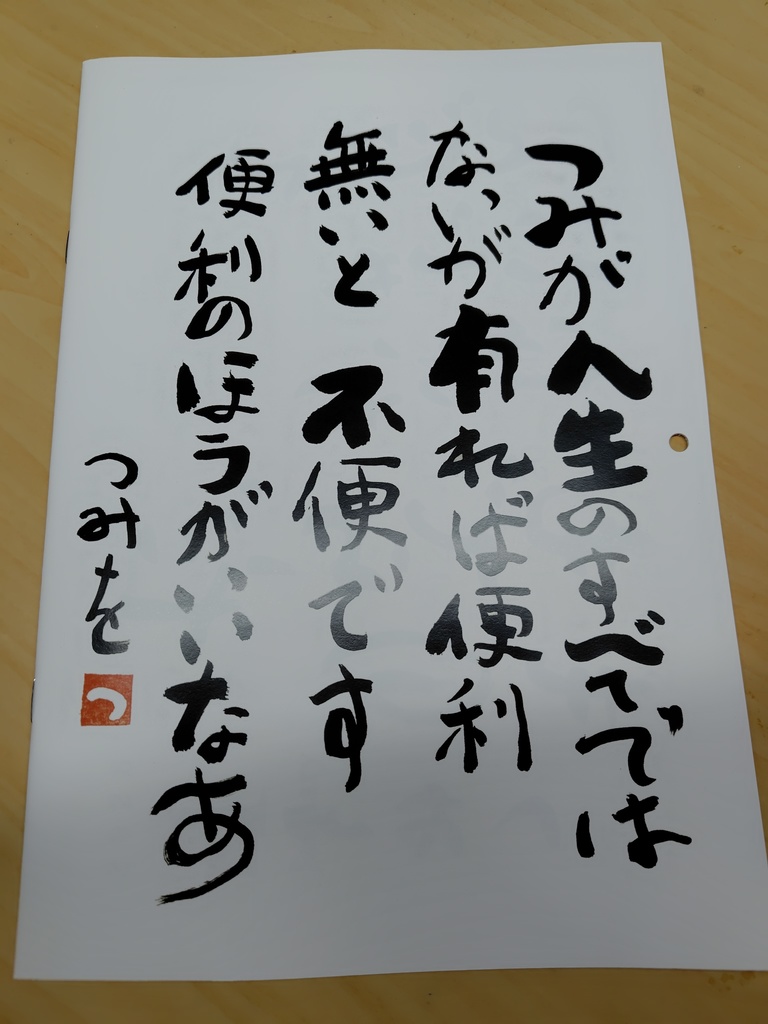 つみが人生のすべてでは
ないが有れば便利
無いと不便です
便利のほうがいいなあ
つみを
つ